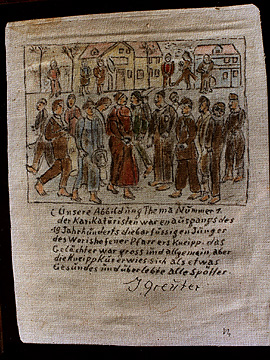 (Unsere Abbildung Thema Nümmer 1.
der Karikatüristen waren ausgangs des
19 Jahrhünderts die barfüssigen Jünger
des Worishofener Pfarrers Kneipp. das
Gelächter war gross und allgemein aber
die Kneippkür erwies sich als etwas
Gesündes ünd überlebte alle Spötter
J Greuter